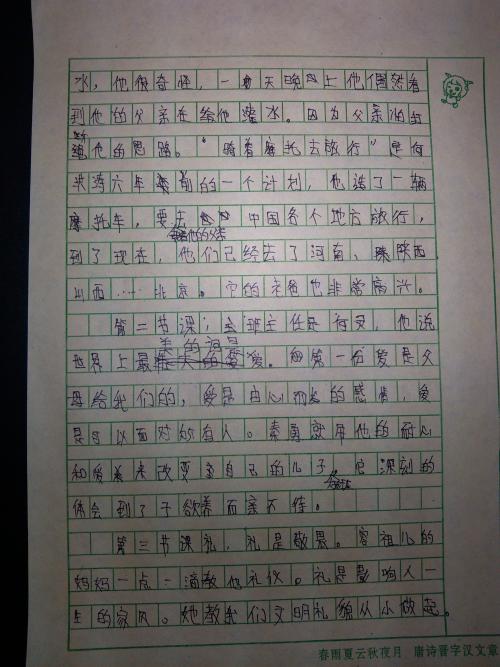 水，他很奇怪，一天晚上他偶然看
到他的父亲在给他灌水。因为父亲怕打
断他的思路。“骑着摩托去旅行”是何
洪涛六年前的一个计划，他造了一辆
摩托车，要去中国各个地方旅行，
带着他的父亲
到了现在，他们已经去了河南、陕西
山西……北京。它的爸爸也非常高兴。
第二节课；主班主任是何炅，他说
世界上最美的词是爱。第一份爱是父
母给我们的，爱是由心而发的感情，爱
是可以面对所有人。索勇就用他的耐心
和爱来改变自己的儿子。他深刻的
体会到了子欲养而亲不待。
第三节课礼，礼是敬畏。容祖儿的
妈妈一点一滴教他礼仪。礼是影响人一
生的家风。她教我们文明礼貌从小做起。
春雨夏云秋夜月 唐诗晋字汉文章